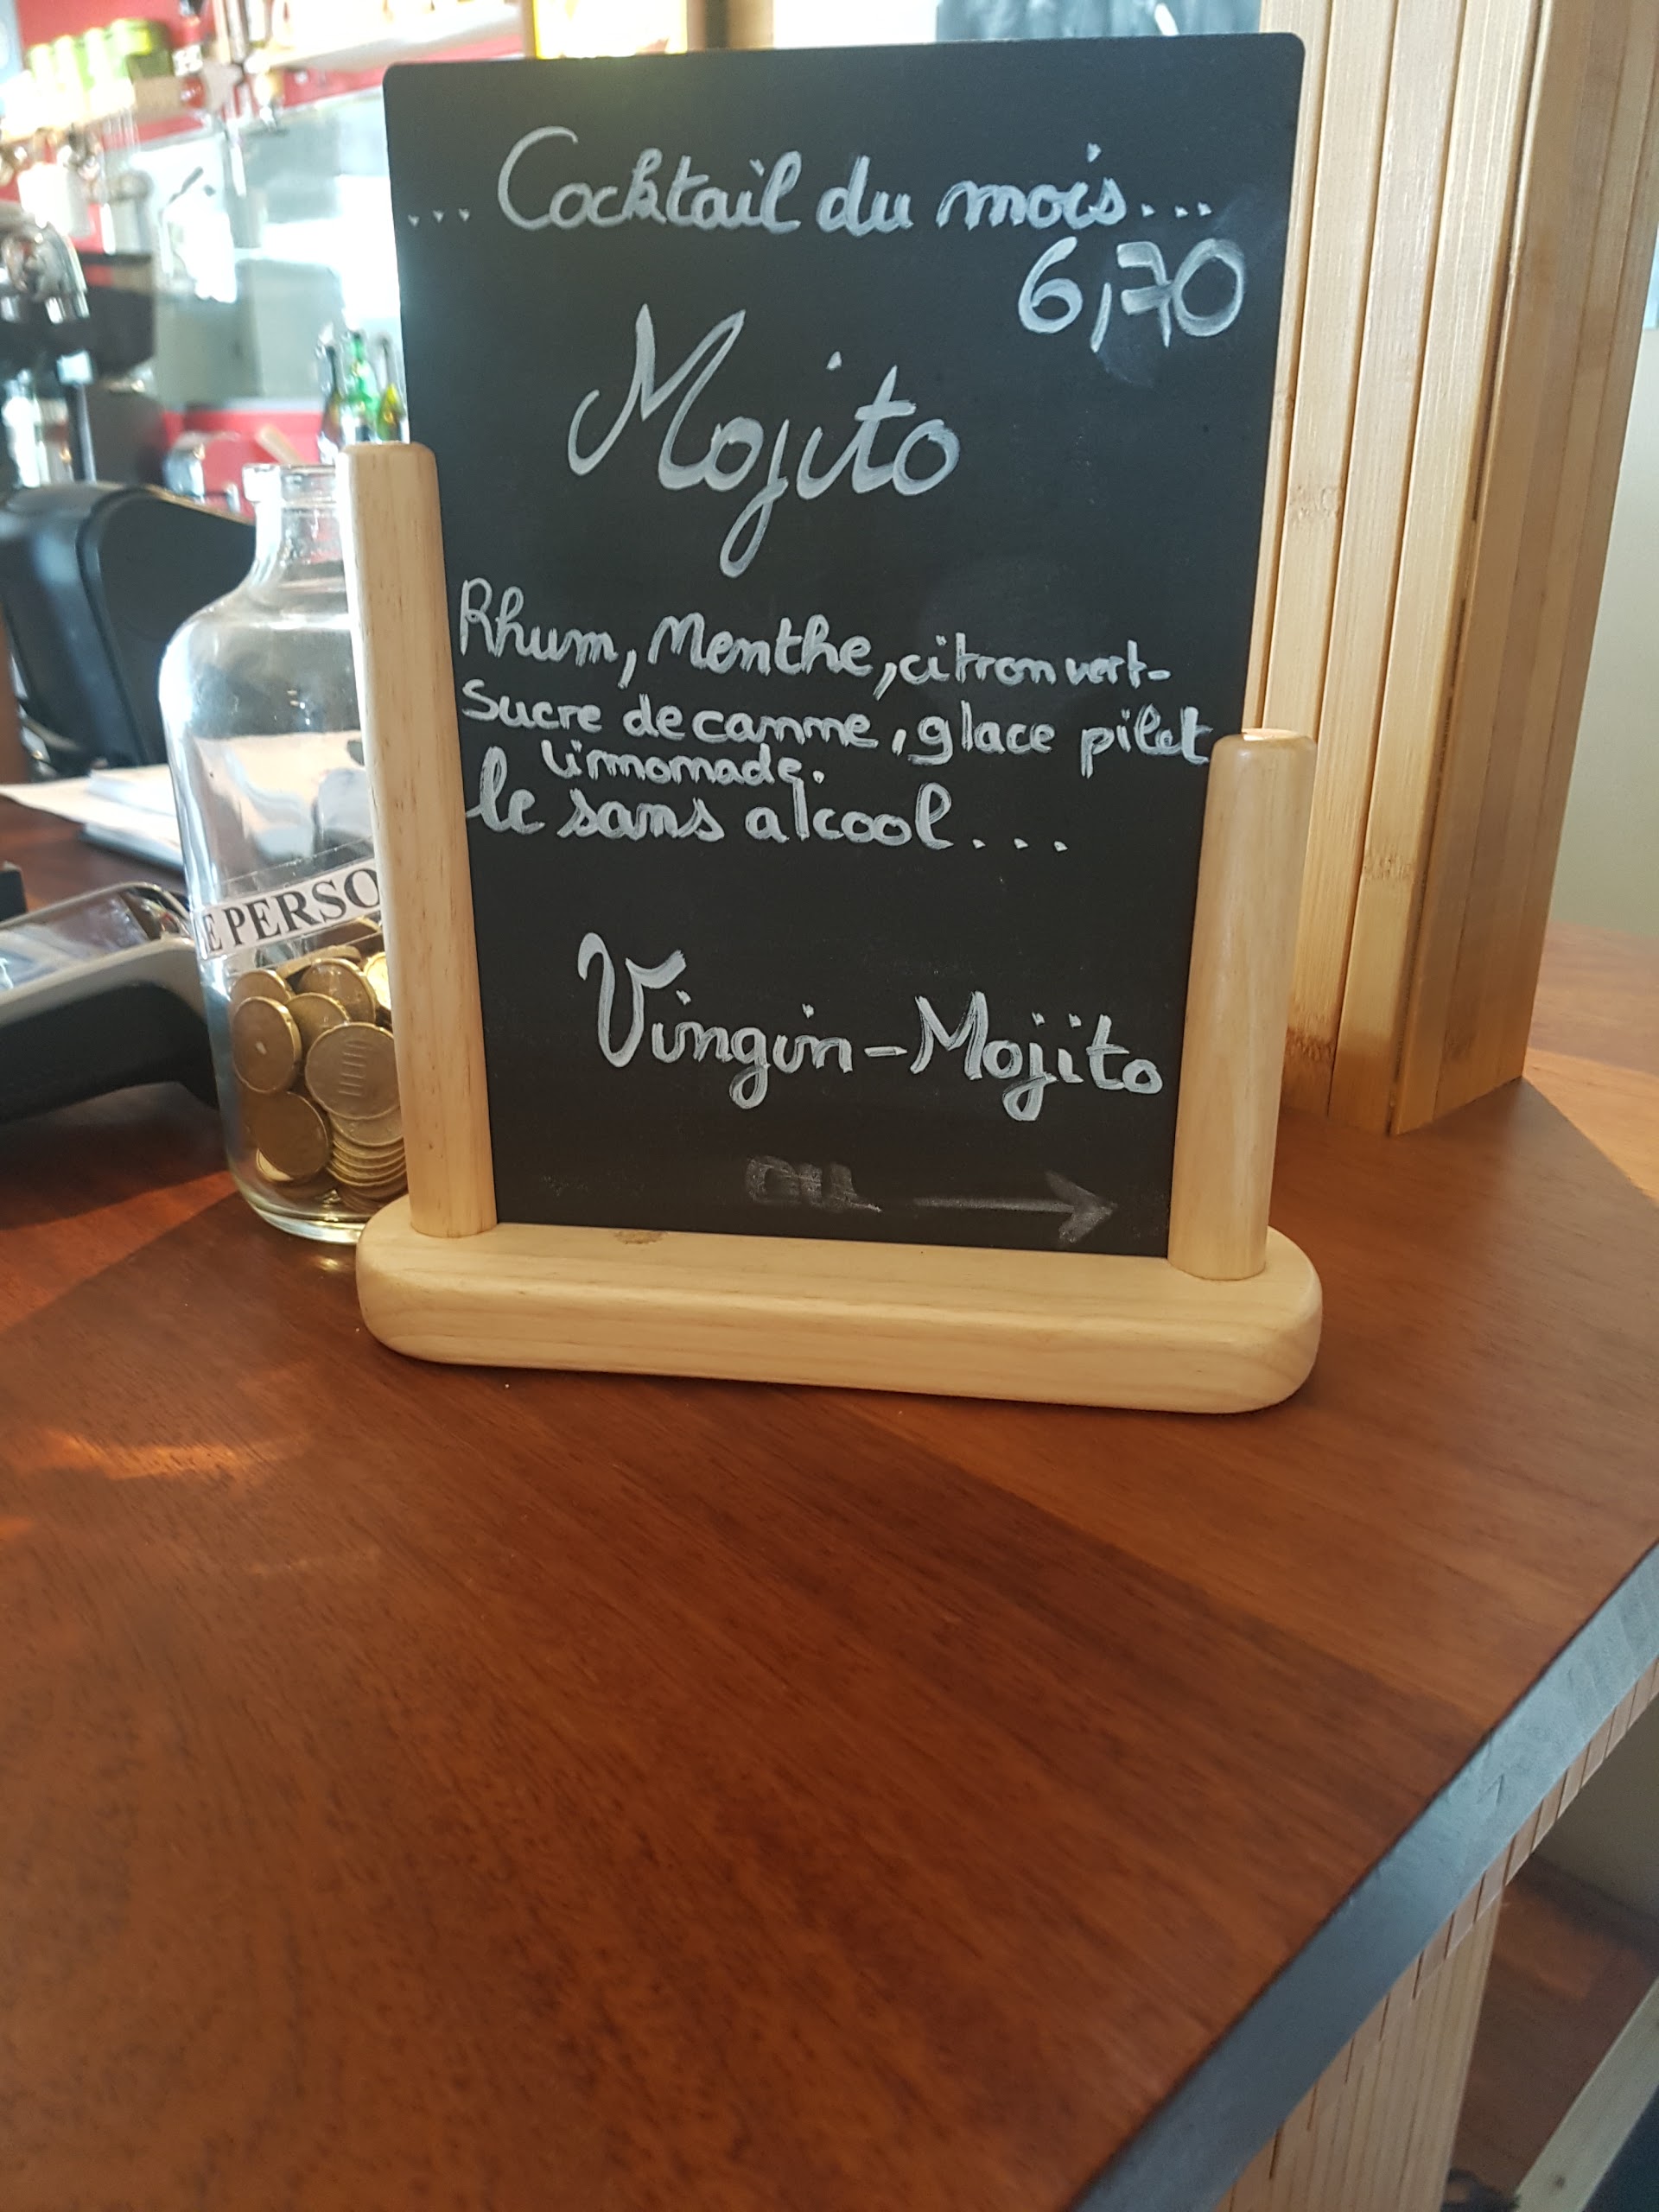 ... Cocktail du mois...
6,70
Mojito
Rhum, Menthe, citron vert-
Sucre de canne, glace pilet
limonade.
le sans alcool...
Vingin-Mojito
OU →
E PERSO